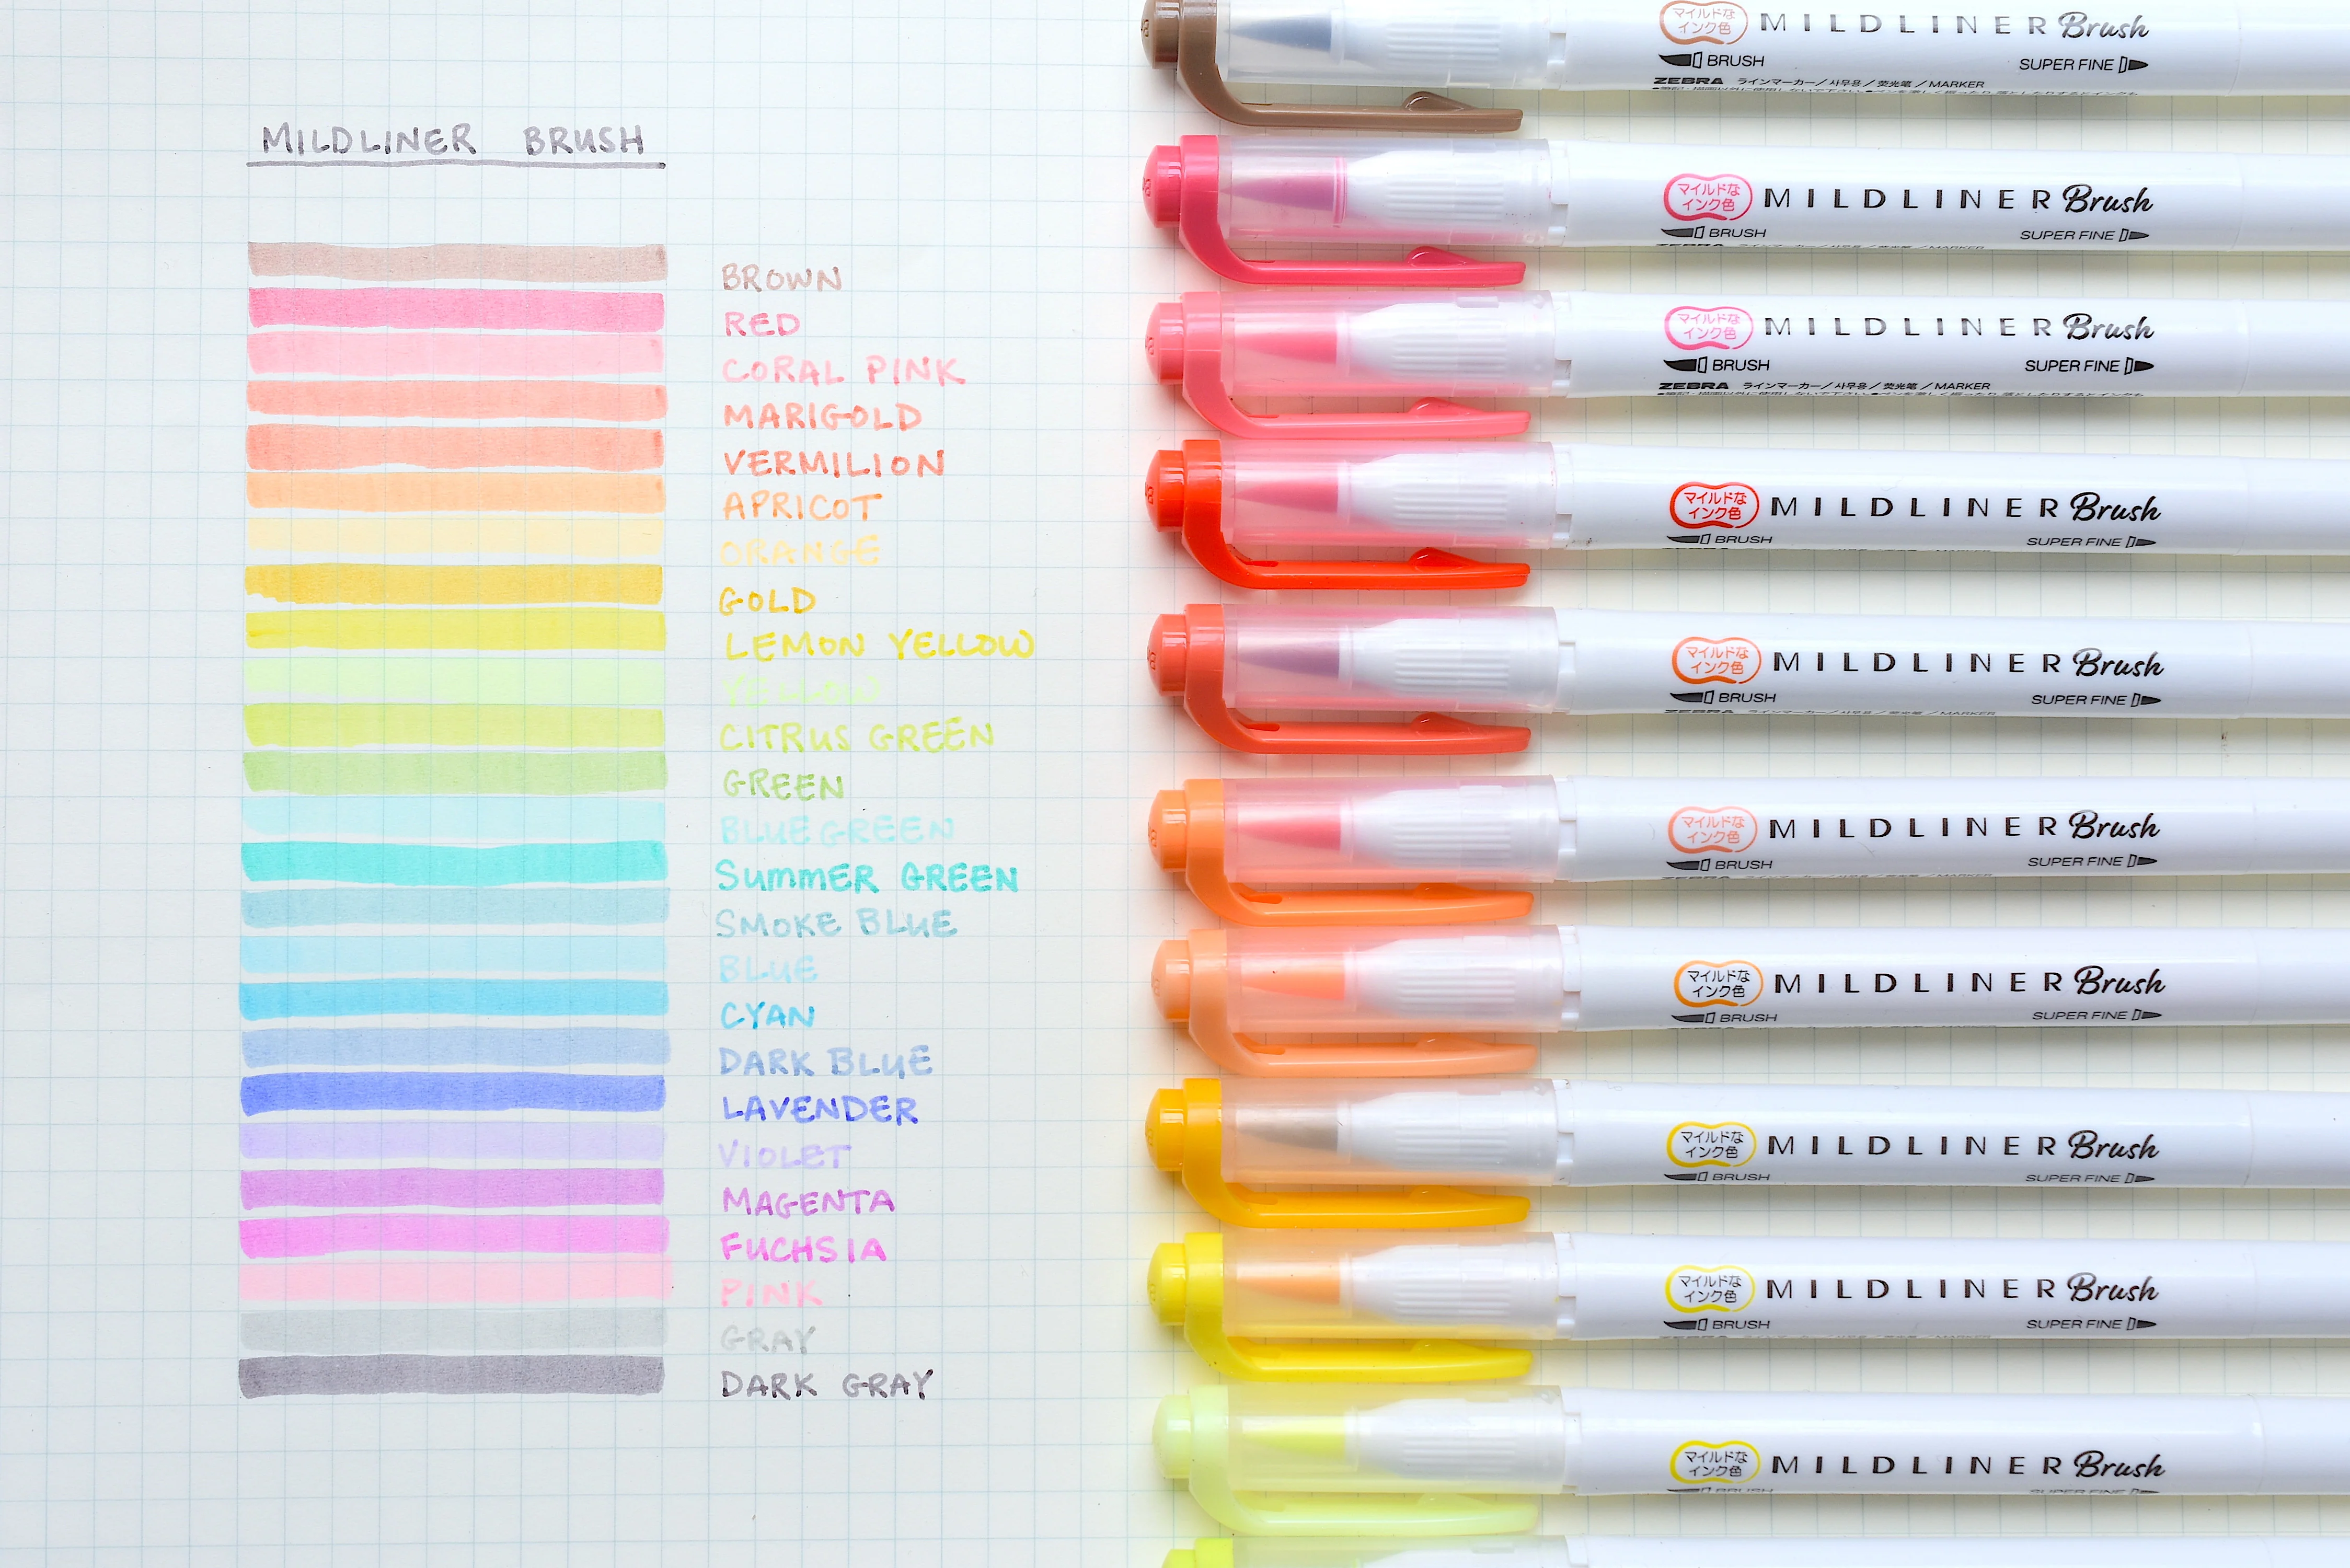 MILDLINER BRUSH
BROWN
RED
CORAL PINK
MARIGOLD
VERMILION
APRICOT
ORANGE
GOLD
LEMON YELLOW
YELLOW
CITRUS GREEN
GREEN
BLUE GREEN
SUMMER GREEN
SMOKE BLUE
BLUE
CYAN
DARK BLUE
LAVENDER
VIOLET
MAGENTA
FUCHSIA
PINK
GRAY
DARK GRAY
マイルドな
インク色
MILDLINER Brush
BRUSH SUPER FINE
ZEBRA ラインマーカー/사무용/荧光笔/MARKER
マイルドな
インク色
MILDLINER Brush
BRUSH SUPER FINE
ZEBRA ラインマーカー
マイルドな
インク色
MILDLINER Brush
BRUSH SUPER FINE
ZEBRA ラインマーカー/사무용/荧光笔/MARKER
マイルドな
インク色
MILDLINER Brush
BRUSH SUPER FINE
マイルドな
インク色
MILDLINER Brush
BRUSH SUPER FINE
ZEBRA
マイルドな
インク色
MILDLINER Brush
BRUSH SUPER FINE
マイルドな
インク色
MILDLINER Brush
BRUSH SUPER FINE
マイルドな
インク色
MILDLINER Brush
BRUSH SUPER FINE
マイルドな
インク色
MILDLINER Brush
BRUSH SUPER FINE
マイルドな
インク色
MILDLINER Brush
BRUSH SUPER FINE